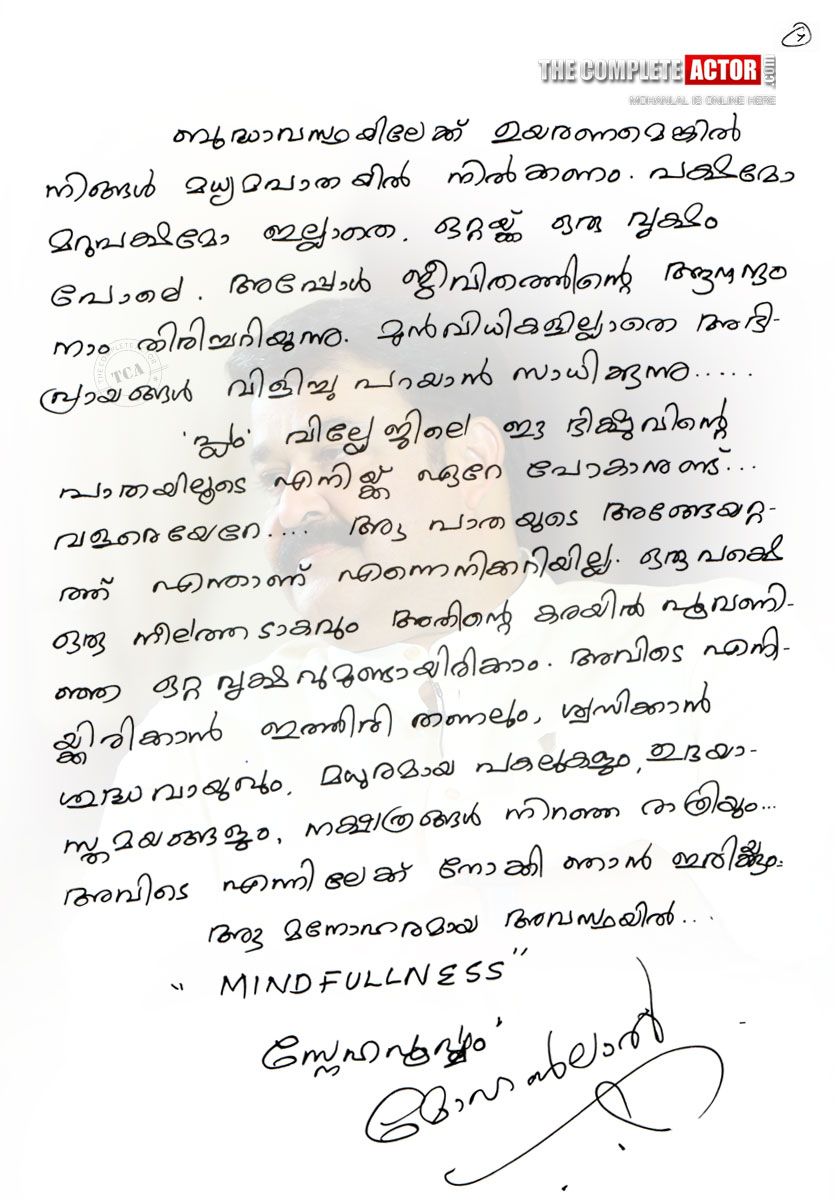 7
THE COMPLETE ACTOR .COM
MOHANLAL IS ONLINE HERE
ബുദ്ധാവസ്ഥയിലേക്ക് ഉയരണമെങ്കിൽ
നിങ്ങൾ മധ്യമപാതയിൽ നിൽക്കണം. പക്ഷമോ
മറുപക്ഷമോ ഇല്ലാതെ. ഒറ്റയ്ക്ക് ഒരു വൃക്ഷം
പോലെ. അപ്പോൾ ജീവിതത്തിന്റെ ആനന്ദം
നാം തിരിച്ചറിയുന്നു. മുൻവിധികളില്ലാതെ അഭി-
പ്രായങ്ങൾ വിളിച്ചു പറയാൻ സാധിക്കുന്നു.....
'പ്ലം' വില്ലേജിലെ ഈ ഭിക്ഷുവിന്റെ
പാതയിലൂടെ എനിയ്ക്ക് ഏറേ പോകാനുണ്ട്...
വളരെയേറേ.... ആ പാതയുടെ അങ്ങേയറ്റ-
ത്ത് എന്താണ് എന്നെനിക്കറിയില്ല. ഒരു പക്ഷെ
ഒരു നീലത്തടാകവും അതിന്റെ കരയിൽ പൂവണി-
ഞ്ഞ ഒറ്റ വൃക്ഷവുമുണ്ടായിരിക്കാം. അവിടെ എനി-
യ്ക്കിരിക്കാൻ ഇത്തിരി തണലും, ശ്വസിക്കാൻ
ശുദ്ധവായുവും, മധുരമായ പകലുകളും, ഉദയാ-
സ്തമയങ്ങളും, നക്ഷത്രങ്ങൾ നിറഞ്ഞ രാത്രിയും...
അവിടെ എന്നിലേക്ക് നോക്കി ഞാൻ ഇരിയ്ക്കും.
ആ മനോഹരമായ അവസ്ഥയിൽ...
"MINDFULLNESS"
സ്നേഹപൂർവ്വം
മോഹൻലാൽ
THE COMPLETE ACTOR
TCA